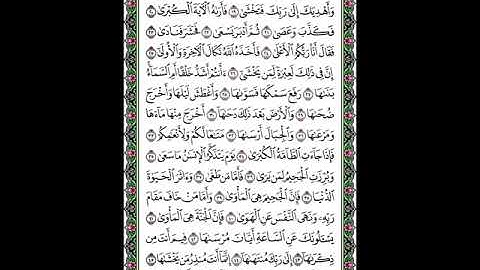 وَأَهْدِيَكَ إِلَىٰ رَبِّكَ فَتَخْشَىٰ ١٩ فَأَرَىٰهُ ٱلْأٓيَةَ ٱلْكُبْرَىٰ ٢٠
فَكَذَّبَ وَعَصَىٰ ٢١ ثُمَّ أَدْبَرَ يَسْعَىٰ ٢٢ فَحَشَرَ فَنَادَىٰ ٢٣
فَقَالَ أَنَا۠ رَبُّكُمُ ٱلْأَعْلَىٰ ٢٤ فَأَخَذَهُ ٱللَّهُ نَكَالَ ٱلْأٓخِرَةِ وَٱلْأُولَىٰٓ ٢٥
إِنَّ فِى ذَٰلِكَ لَعِبْرَةً لِّمَن يَخْشَىٰٓ ٢٦ ءَأَنتُمْ أَشَدُّ خَلْقًا أَمِ ٱلسَّمَآءُ
بَنَىٰهَا ٢٧ رَفَعَ سَمْكَهَا فَسَوَّىٰهَا ٢٨ وَأَغْطَشَ لَيْلَهَا وَأَخْرَجَ
ضُحَىٰهَا ٢٩ وَٱلْأَرْضَ بَعْدَ ذَٰلِكَ دَحَىٰهَآ ٣٠ أَخْرَجَ مِنْهَا مَآءَهَا
وَمَرْعَىٰهَا ٣١ وَٱلْجِبَالَ أَرْسَىٰهَا ٣٢ مَتَٰعًا لَّكُمْ وَلِأَنْعَٰمِكُمْ ٣٣
فَإِذَا جَآءَتِ ٱلطَّآمَّةُ ٱلْكُبْرَىٰ ٣٤ يَوْمَ يَتَذَكَّرُ ٱلْإِنسَٰنُ مَا سَعَىٰ ٣٥
وَبُرِّزَتِ ٱلْجَحِيمُ لِمَن يَرَىٰ ٣٦ فَأَمَّا مَن طَغَىٰ ٣٧ وَءَاثَرَ ٱلْحَيَوٰةَ
ٱلدُّنْيَا ٣٨ فَإِنَّ ٱلْجَحِيمَ هِىَ ٱلْمَأْوَىٰ ٣٩ وَأَمَّا مَنْ خَافَ مَقَامَ
رَبِّهِۦ وَنَهَى ٱلنَّفْسَ عَنِ ٱلْهَوَىٰ ٤٠ فَإِنَّ ٱلْجَنَّةَ هِىَ ٱلْمَأْوَىٰ ٤١
يَسْـَٔلُونَكَ عَنِ ٱلسَّاعَةِ أَيَّانَ مُرْسَىٰهَا ٤٢ فِيمَ أَنتَ مِن
ذِكْرَىٰهَآ ٤٣ إِلَىٰ رَبِّكَ مُنتَهَىٰهَآ ٤٤ إِنَّمَآ أَنتَ مُنذِرُ مَن يَخْشَىٰهَا ٤٥